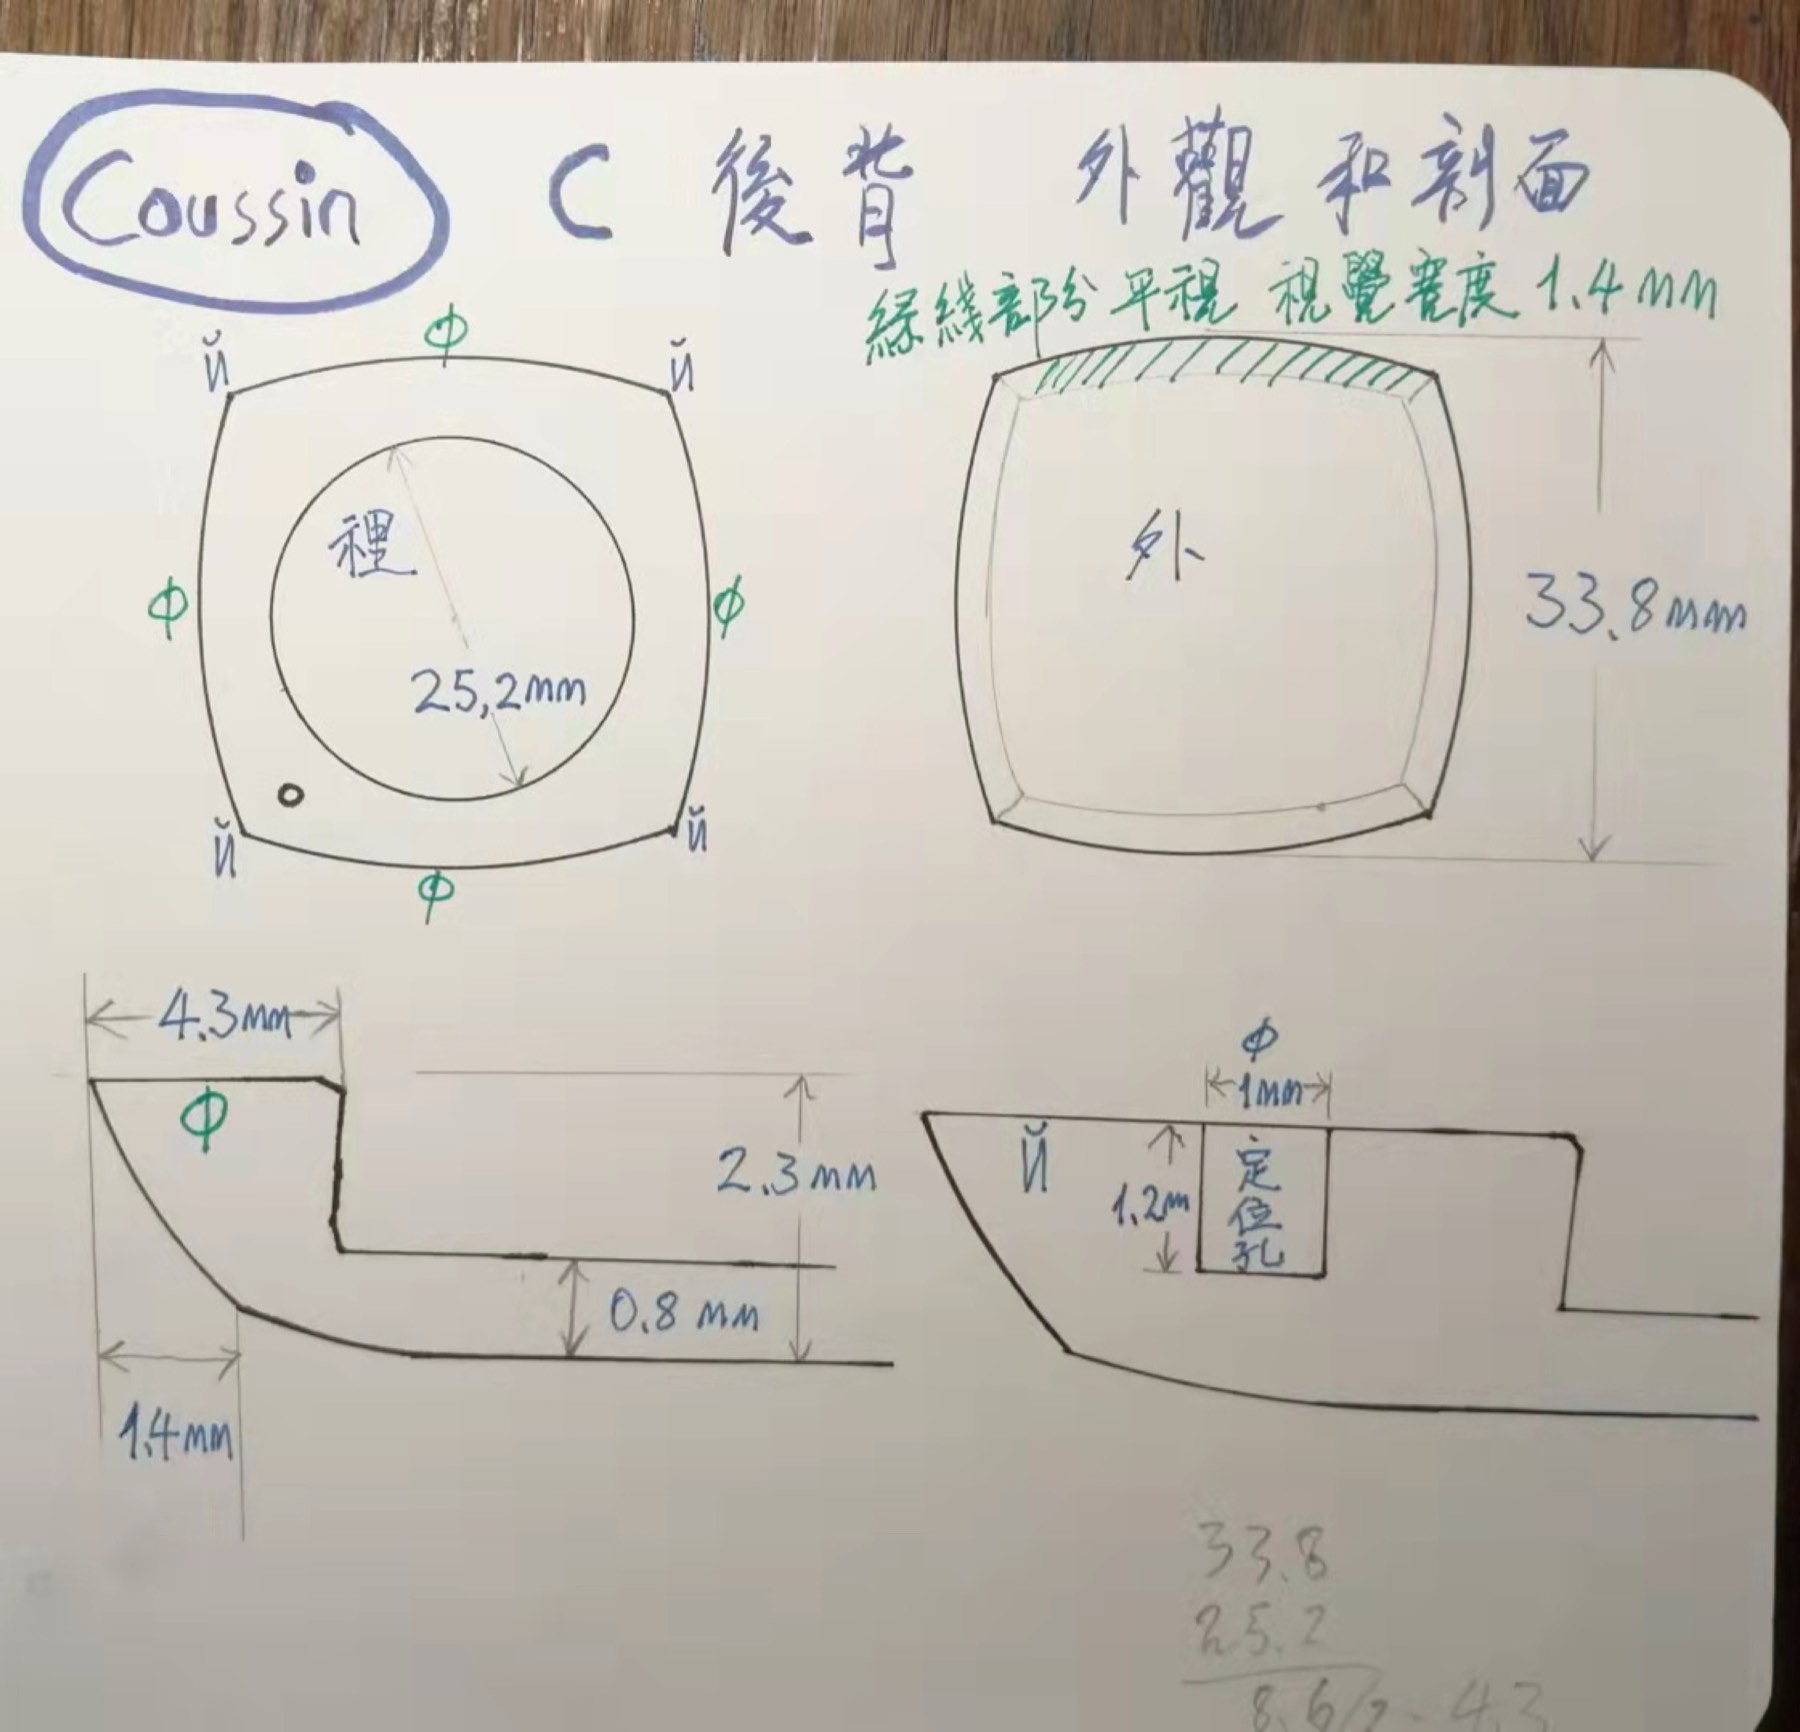 Coussin C 後背 外觀和剖面
綠綫部分平視 視覺寬度 1.4mm
Й ф Й
裡
外
ф ф
33.8mm
25,2mm
Й Й
ф
4.3mm
ф
1mm
ф
2.3mm
Й
1.2m
定
位
孔
0.8mm
1.4mm
33.8
25.2
8.6/2 - 4.3